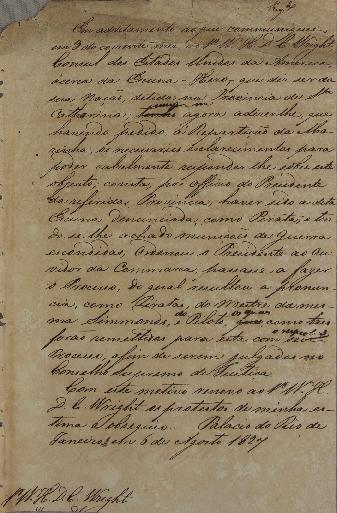 Em additamento ao que communiquei
em 3 do corrente mez ao Sr. W. H. D. C. Wright
Consul dos Estados Unidos da America,
ácerca da Escuna - Hero, que diz ser da
sua Nação, detida na Provincia de Sta
Catharina; agora advertir-lhe, que
havendo pedido á Repartição da Ma-
rinha, os necessarios esclarecimentos para
poder cabalmente responder-lhe sobre este
objecto; consta, por officio do Presidente
da referida Provincia, haver sido a dita
Escuna denunciada, como Pirata, e ten-
do-se lhe achado munições de Guerra
escondidas, Ordenou o Presidente ao Ou-
vidor da Commarca, passasse a fazer
o Processo, do qual resultou a pronun-
cia, como Piratas, do Mestre da mes-
ma Simmonds, e do Piloto, os quaes como taes
forão remettidos para este com o
Processo, afim de serem julgados no
Conselho Supremo de Justiça
Com este motivo renovo ao Sr. W. H.
D. C. Wright os protestos de minha es-
tima e obsequio. Palacio do Rio de
Janeiro em 6 de Agosto 1827
Sr. W. H. D. C. Wright